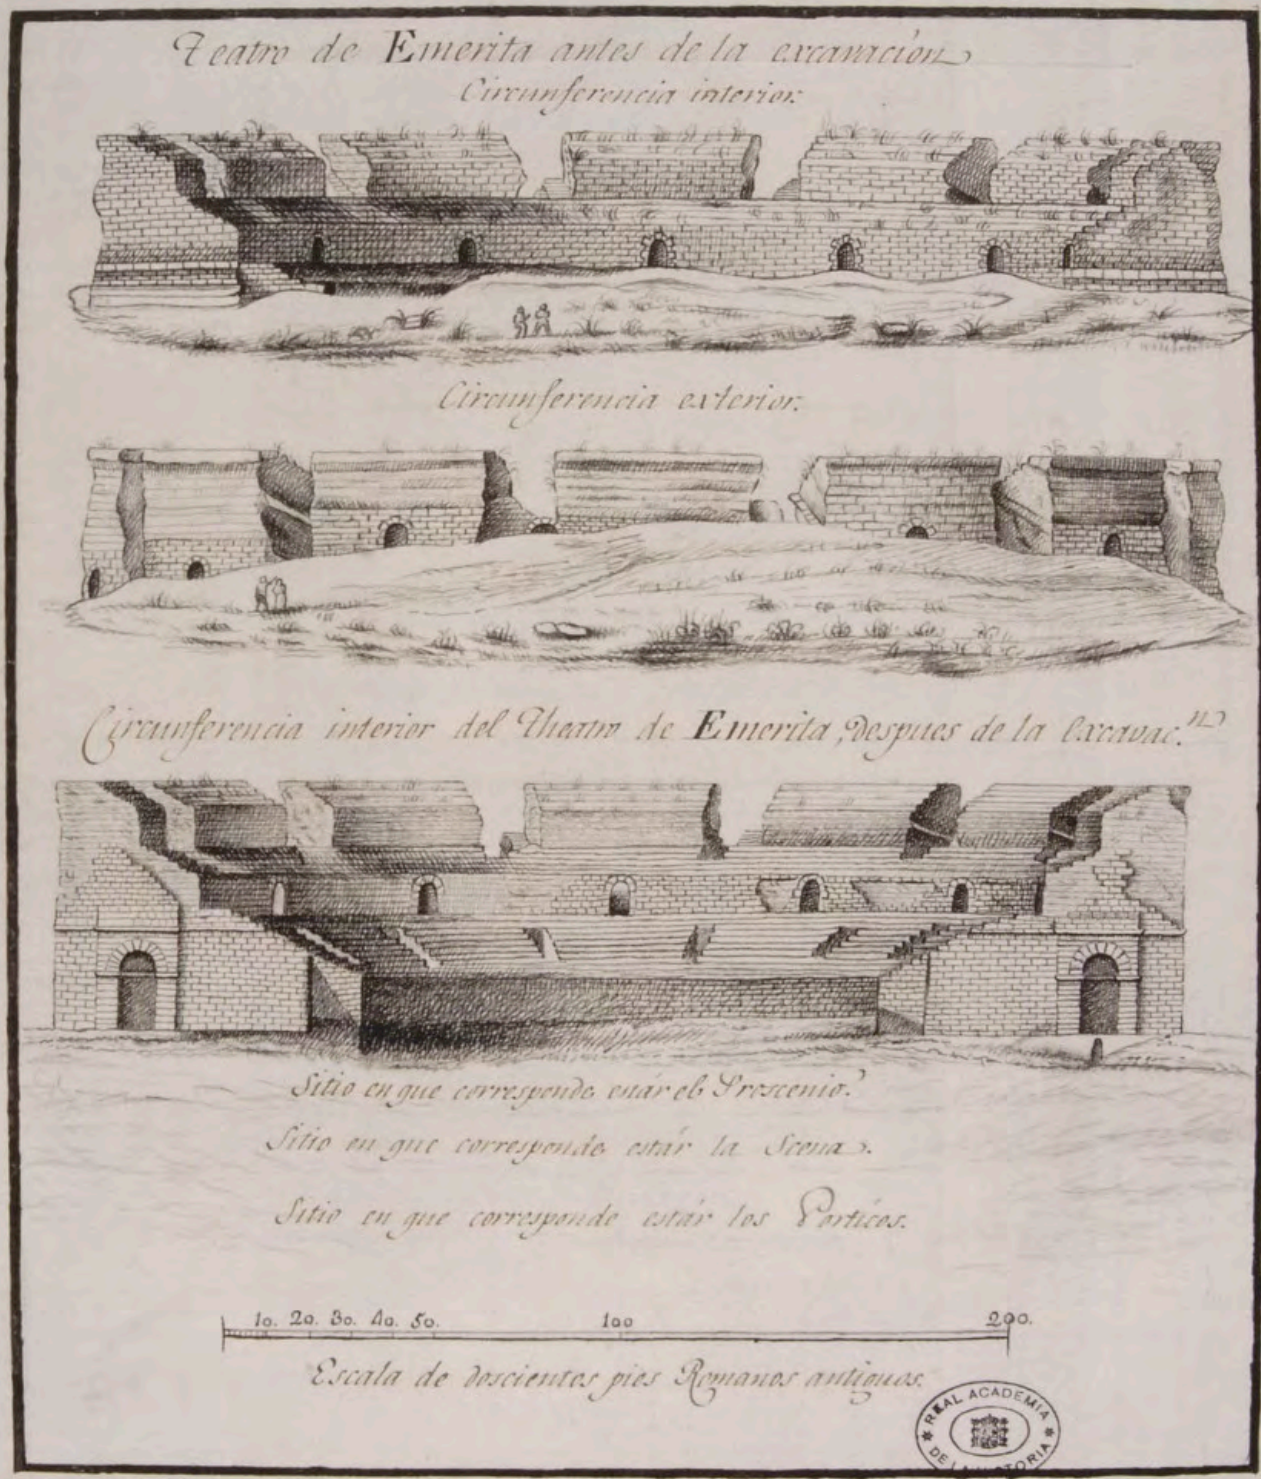 Teatro de Emerita antes de la excavacion
Circunferencia interior.
Circunferencia exterior.
Circunferencia interior del Theatro de Emerita, despues de la Excavac.n
Sitio en que corresponde estár el Proscenio.
Sitio en que corresponde estár la Scena.
Sitio en que corresponde estár los Porticos.
10. 20. 30. 40. 50. 100 200.
Escala de doscientos pies Romanos antiguos.
REAL ACADEMIA
DE LA HISTORIA